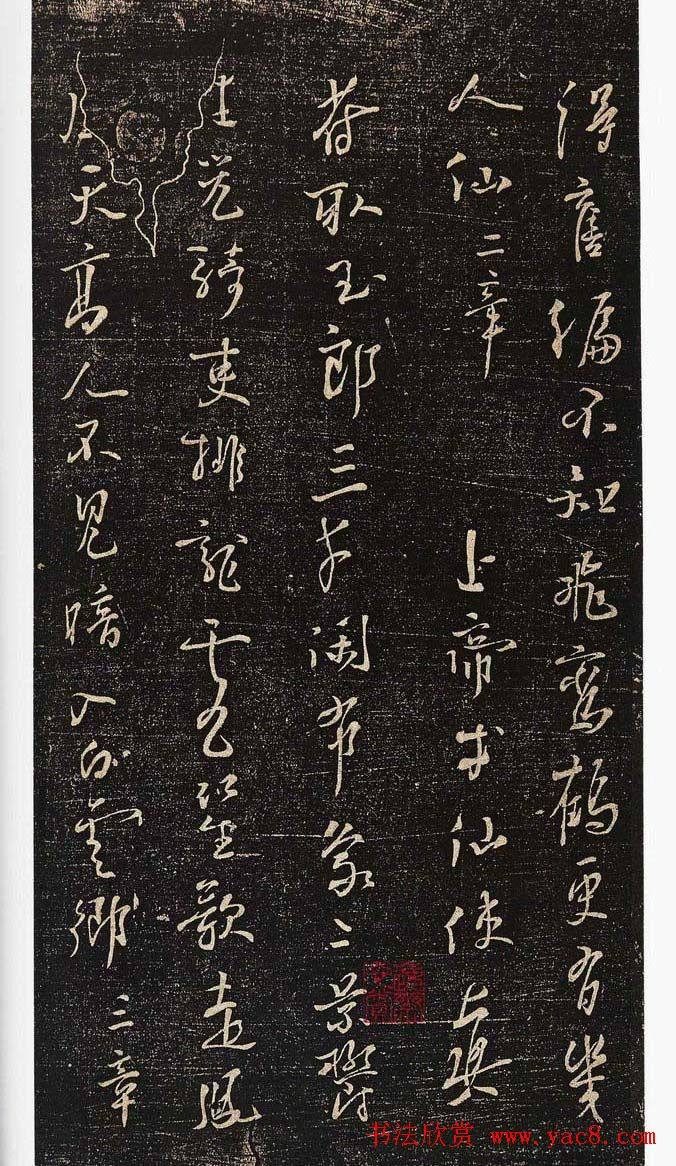 得舊編不知飛鸞鶴更有幾
人仙二章 上帝求仙使真
符取玉郎三才閑布象二景鬱
生光騎吏排龍虎笙歌走鳳
凰天高人不見暗入白雲鄉 三章
书法欣赏 www.yac8.com